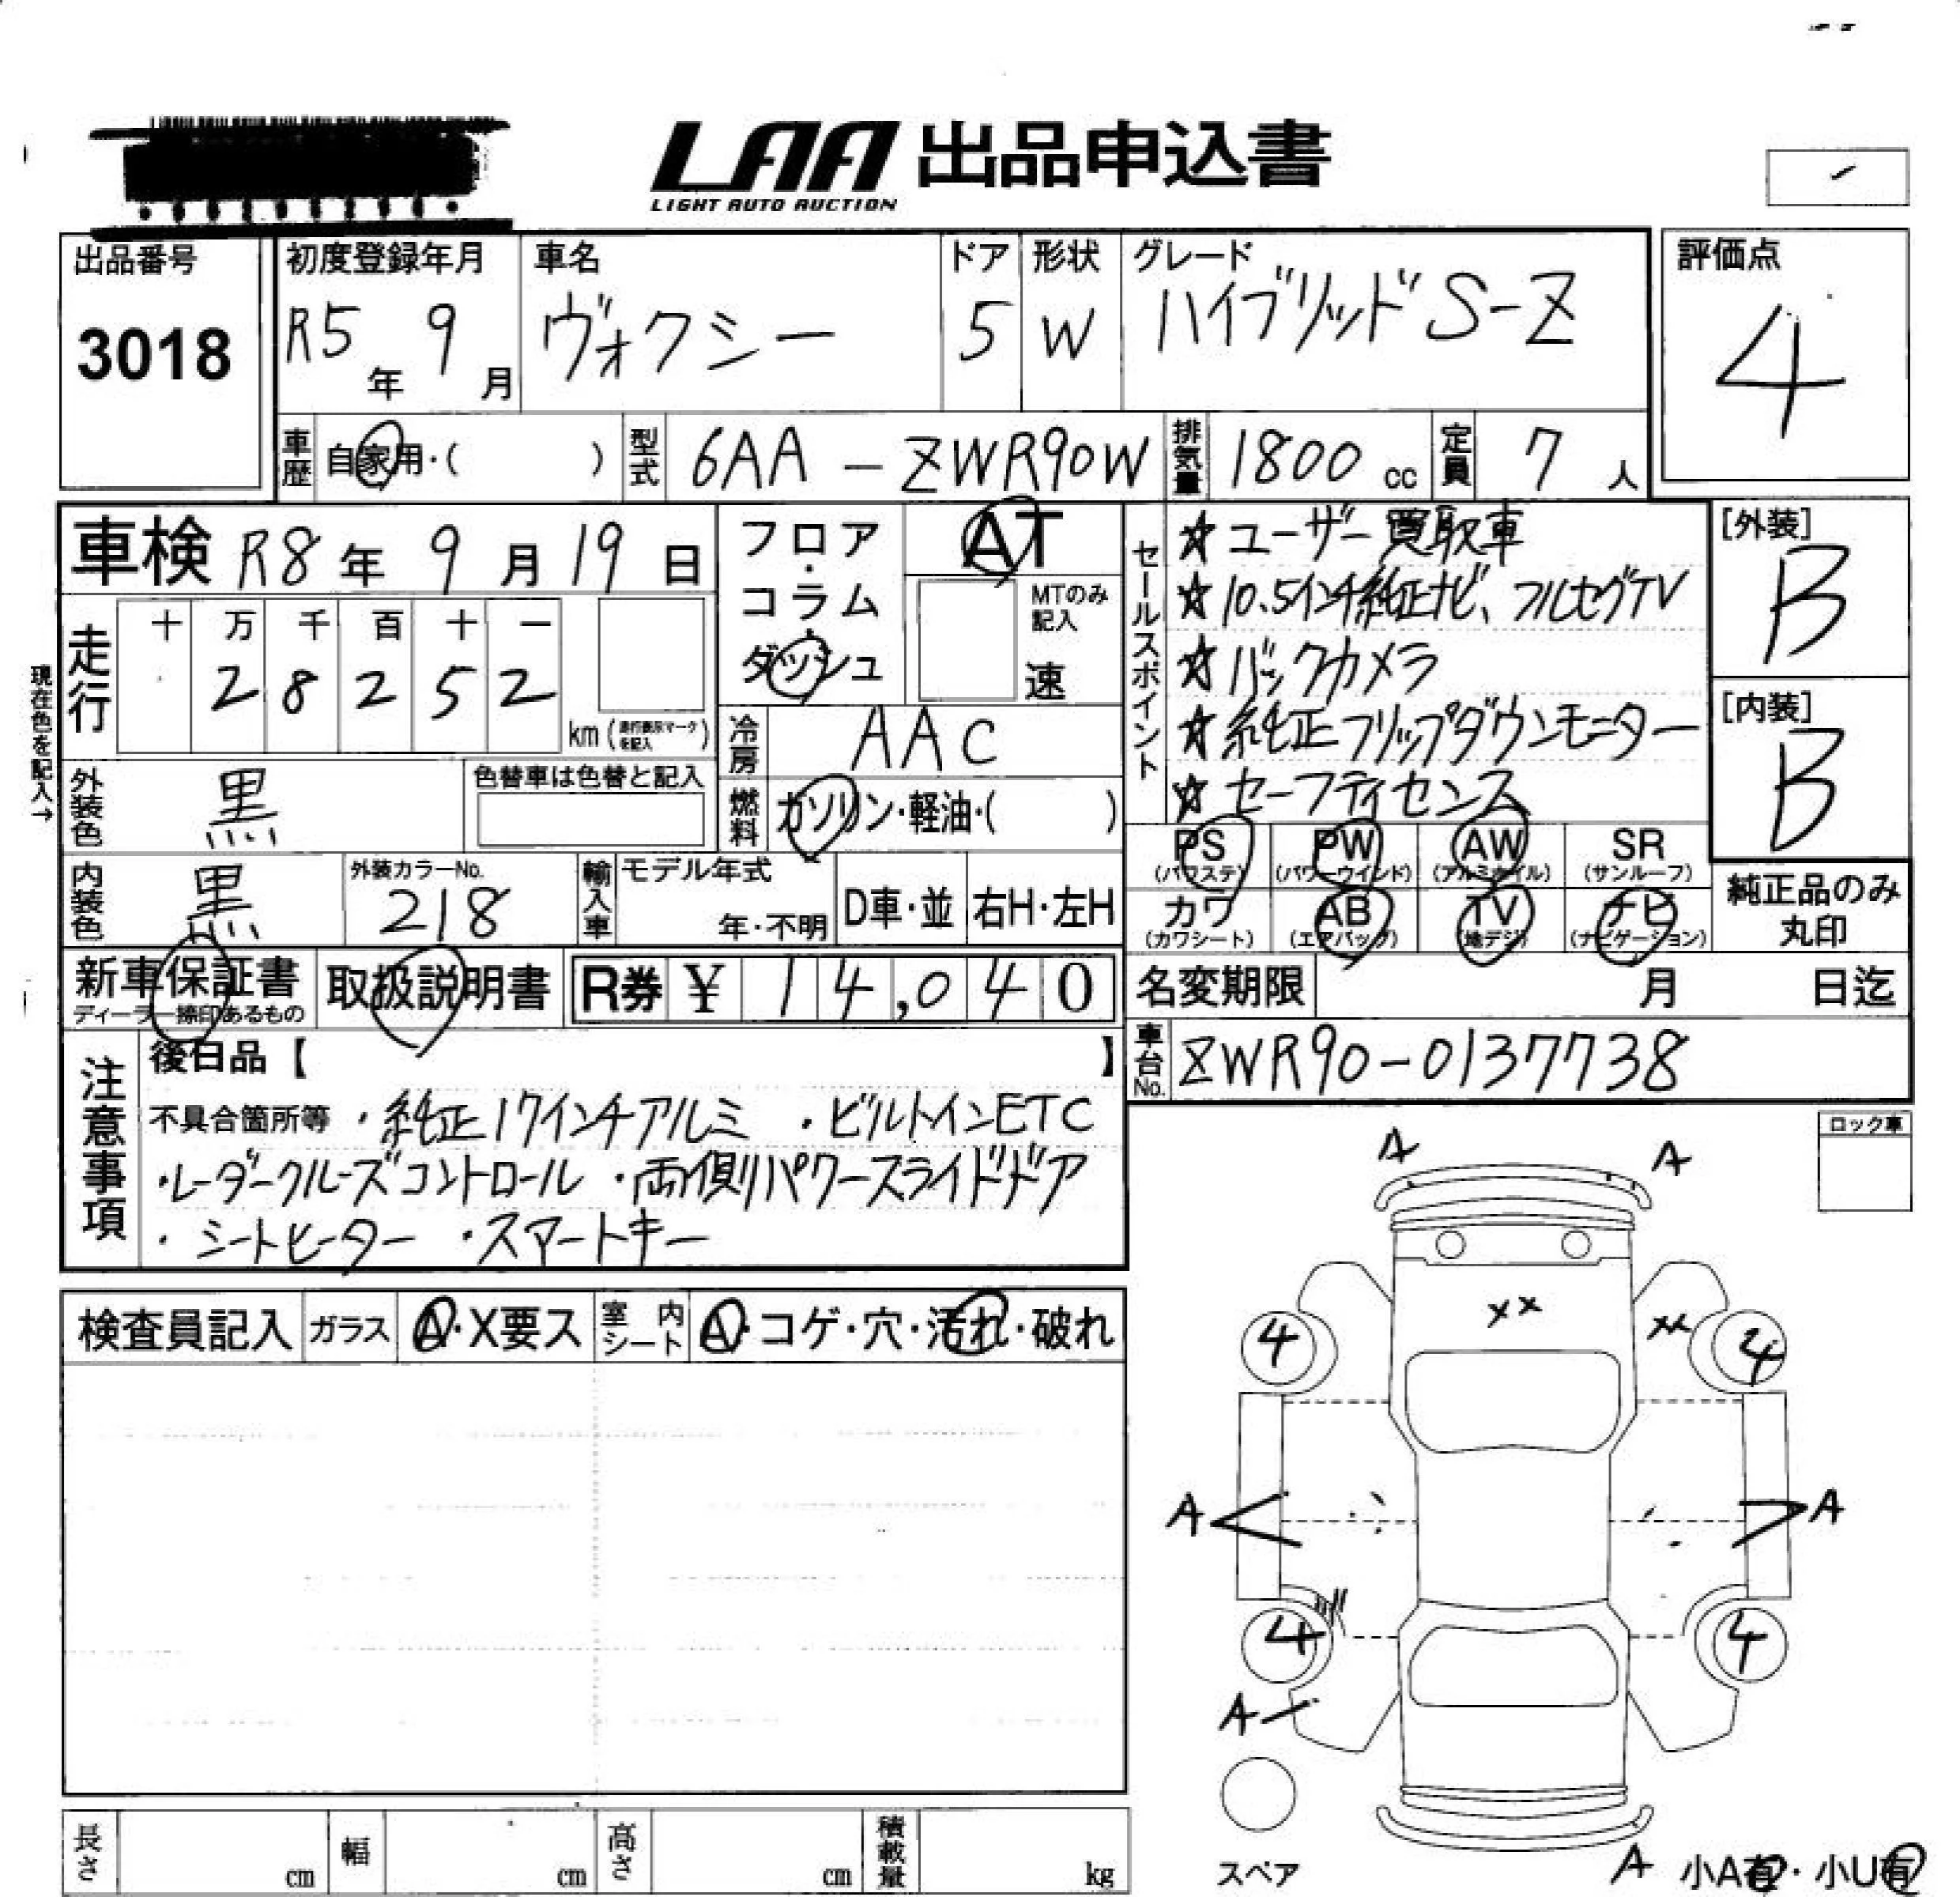 LAA 出品申込書
LIGHT AUTO AUCTION
出品番号
3018
初度登録年月
R5年 9月
車名
ヴォクシー
ドア
5
形状
W
グレード
ハイブリッドS-Z
評価点
4
車歴 自家用・( )
型式 6AA-ZWR90W
排気量 1800 cc
定員 7 人
車検 R8年 9月 19日
フロア・コラム
ダッシュ
AT
MTのみ記入
速
セールスポイント
☆ ユーザー買取車
☆ 10.5インチ純正ナビ、フルセグTV
☆ バックカメラ
☆ 純正フリップダウンモニター
☆ セーフティセンス
[外装]
B
[内装]
B
現在色を記入→
走行
十 万 千 百 十 一
2 8 2 5 2
km (走行表示マークを記入)
冷房 AAC
燃料 ガソリン・軽油・( )
外装色 黒
色替車は色替と記入
内装色 黒
外装カラーNo.
218
輸入車
モデル年式
年・不明
D車・並
右H・左H
PS (パワステ)
PW (パワーウインド)
AW (アルミホイル)
SR (サンルーフ)
カワ (カワシート)
AB (エアバッグ)
TV (地デジ)
ナビ (ナビゲーション)
純正品のみ
丸印
新車保証書
ディーラー捺印あるもの
取扱説明書
R券 ¥ 14,040
名変期限 月 日迄
車台No. ZWR90-0137738
注意事項
後日品【 】
不具合箇所等 ・純正17インチアルミ ・ビルトインETC
・レーダークルーズコントロール ・両側パワースライドドア
・シートヒーター ・スマートキー
ロック車
検査員記入
ガラス A・X要ス
室内シート A・コゲ・穴・汚れ・破れ
A A
XX XX
4 4
A A
4 4
A
スペア
A
小A有・小U有
長さ cm
幅 cm
高さ cm
積載量 kg